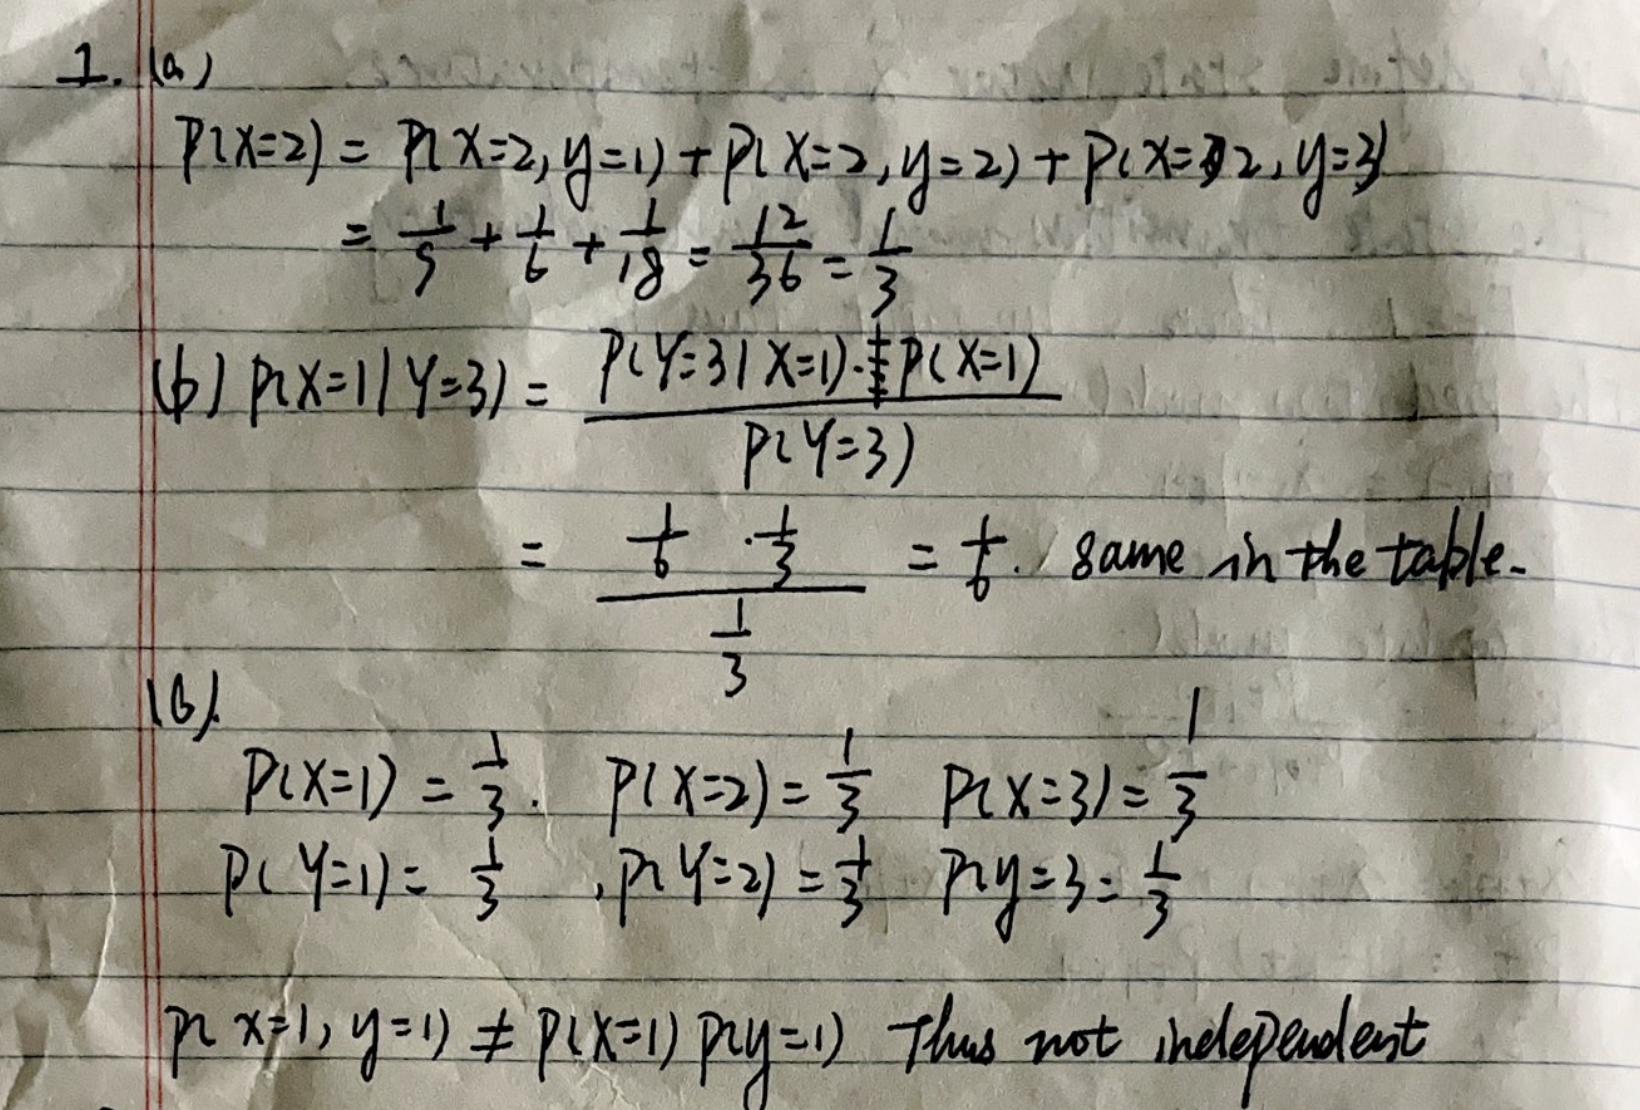 1. (a)
P(X=2) = P(X=2, y=1) + P(X=2, y=2) + P(X=2, y=3)
= 1/9 + 1/6 + 1/18 = 12/36 = 1/3
(b) P(X=1|Y=3) = P(Y=3|X=1)·P(X=1) / P(Y=3)
= 1/6 · 1/3 / 1/3 = 1/6. same in the table.
(c).
P(X=1) = 1/3. P(X=2) = 1/3 P(X=3) = 1/3
P(Y=1) = 1/3 , P(Y=2) = 1/3 P(y=3 = 1/3
P(x=1, y=1) ≠ P(X=1) P(y=1) Thus not independent